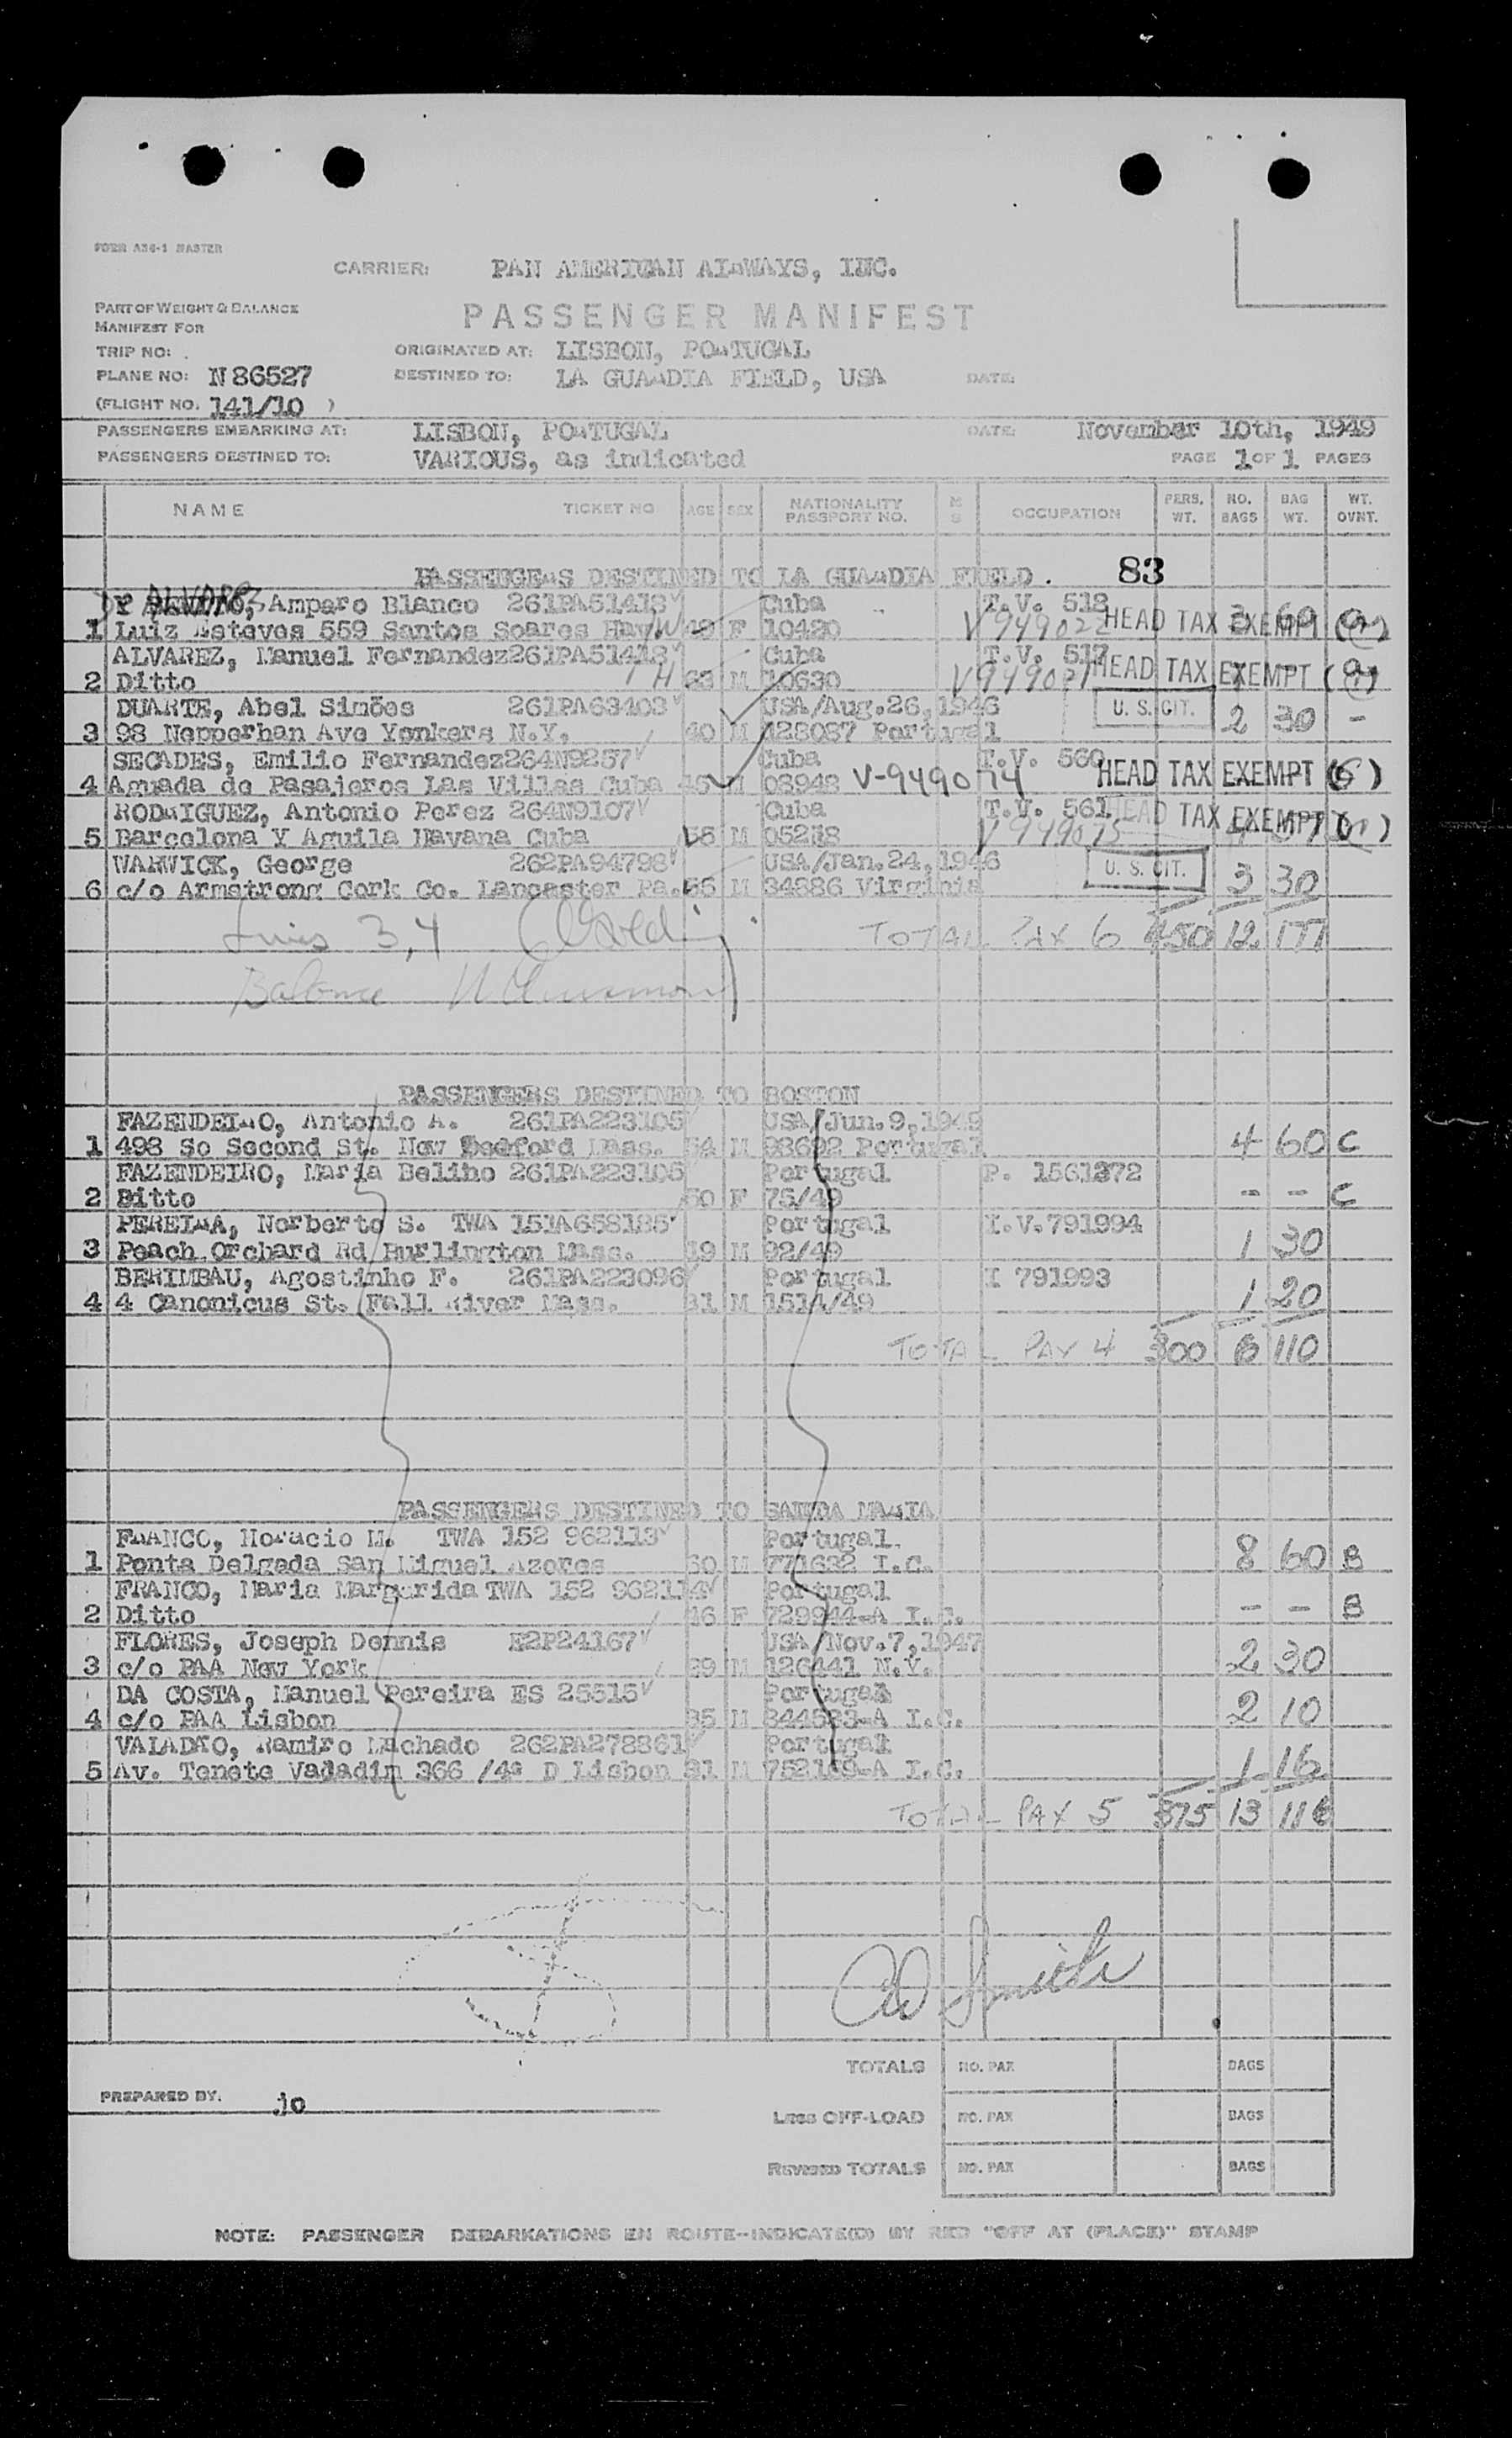 FORM A36-1 MASTER
CARRIER: PAN AMERICAN AIRWAYS, INC.
PART OF WEIGHT & BALANCE
MANIFEST FOR
PASSENGER MANIFEST
TRIP NO: ORIGINATED AT: LISBON, PORTUGAL
PLANE NO: N 86527 DESTINED TO: LA GUARDIA FIELD, USA DATE:
(FLIGHT NO. 141/10 )
PASSENGERS EMBARKING AT: LISBON, PORTUGAL DATE: November 10th, 1949
PASSENGERS DESTINED TO: VARIOUS, as indicated PAGE 1 OF 1 PAGES
NAME TICKET NO AGE SEX NATIONALITY PASSPORT NO. M S OCCUPATION PERS. WT. NO. BAGS BAG WT. WT. OVNT.
PASSENGERS DESTINED TO LA GUARDIA FIELD. 83
ALVAREZ, Amparo Blanco 261PA51418 Cuba T.V. 518
1 Luiz Esteves 559 Santos Soares Hav. W F 10420 V949022 HEAD TAX EXEMPT 3 60
ALVAREZ, Manuel Fernandez 261PA51418 Cuba T.V. 517
2 Ditto H M 10630 V949021 HEAD TAX EXEMPT
DUARTE, Abel Simões 261PA63403 USA/Aug.26,1946 U. S. CIT.
3 98 Nepperhan Ave Yonkers N.Y. 40 M 128087 Portugal 2 30 -
SECADES, Emilio Fernandez 264N9257 Cuba T.V. 560
4 Aguada de Pasajeros Las Villas Cuba 45 M 08948 V-949074 HEAD TAX EXEMPT
RODRIGUEZ, Antonio Perez 264N9107 Cuba T.V. 561 HEAD TAX EXEMPT
5 Barcelona Y Aguila Havana Cuba M V949075
WARWICK, George 262PA94798 USA/Jan.24,1946 U. S. CIT.
6 c/o Armstrong Cork Co. Lancaster Pa. 55 M 34886 Virginia 3 30
3,4 TOTAL PAX 6 450 12 171
Balance
PASSENGERS DESTINED TO BOSTON
FAZENDEIRO, Antonio A. 261PA223105 USA/Jun.9,1949
1 498 So Second St. New Bedford Mass. 54 M 98692 Portugal 4 60 C
FAZENDEIRO, Maria Beliho 261PA223105 Portugal P. 1561372
2 Ditto 50 F 75/49 - - C
PEREIRA, Norberto S. TWA 151A658185 Portugal I.V.791994
3 Peach Orchard Rd Burlington Mass. 19 M 92/49 1 30
BERIMBAU, Agostinho F. 261PA223096 Portugal I 791993
4 4 Canonicus St. Fall River Mass. 31 M 1514/49 1 20
TOTAL PAX 4 300 6 110
PASSENGERS DESTINED TO SANTA MARIA
FRANCO, Horacio M. TWA 152 962113 Portugal.
1 Ponta Delgada San Miguel Azores 60 M 771632 I.C. 8 60 B
FRANCO, Maria Margarida TWA 152 962114 Portugal
2 Ditto 46 F 729944-A I.C. - - B
FLORES, Joseph Dennis E2P24167 USA/Nov.7,1947
3 c/o PAA New York 29 M 126441 N.Y. 2 30
DA COSTA, Manuel Pereira ES 25515 Portugal
4 c/o PAA Lisbon 35 M 344583-A I.C. 2 10
VALADÃO, Ramiro Machado 262PA278861 Portugal
5 Av. Tenete Valadim 366 /4º D Lisbon 31 M 752169-A I.C. 1 16
TOTAL PAX 5 375 13 116
CD Smith
TOTALS NO. PAX BAGS
PREPARED BY. jo
Less OFF-LOAD NO. PAX BAGS
REVISED TOTALS NO. PAX BAGS
NOTE: PASSENGER DEBARKATIONS EN ROUTE--INDICATE(D) BY RED "OFF AT (PLACE)" STAMP